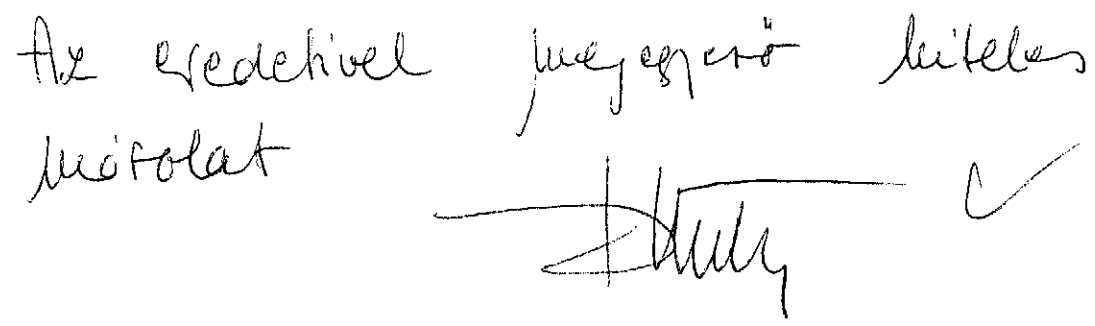 Az eredetivel megegyező hiteles
másolat